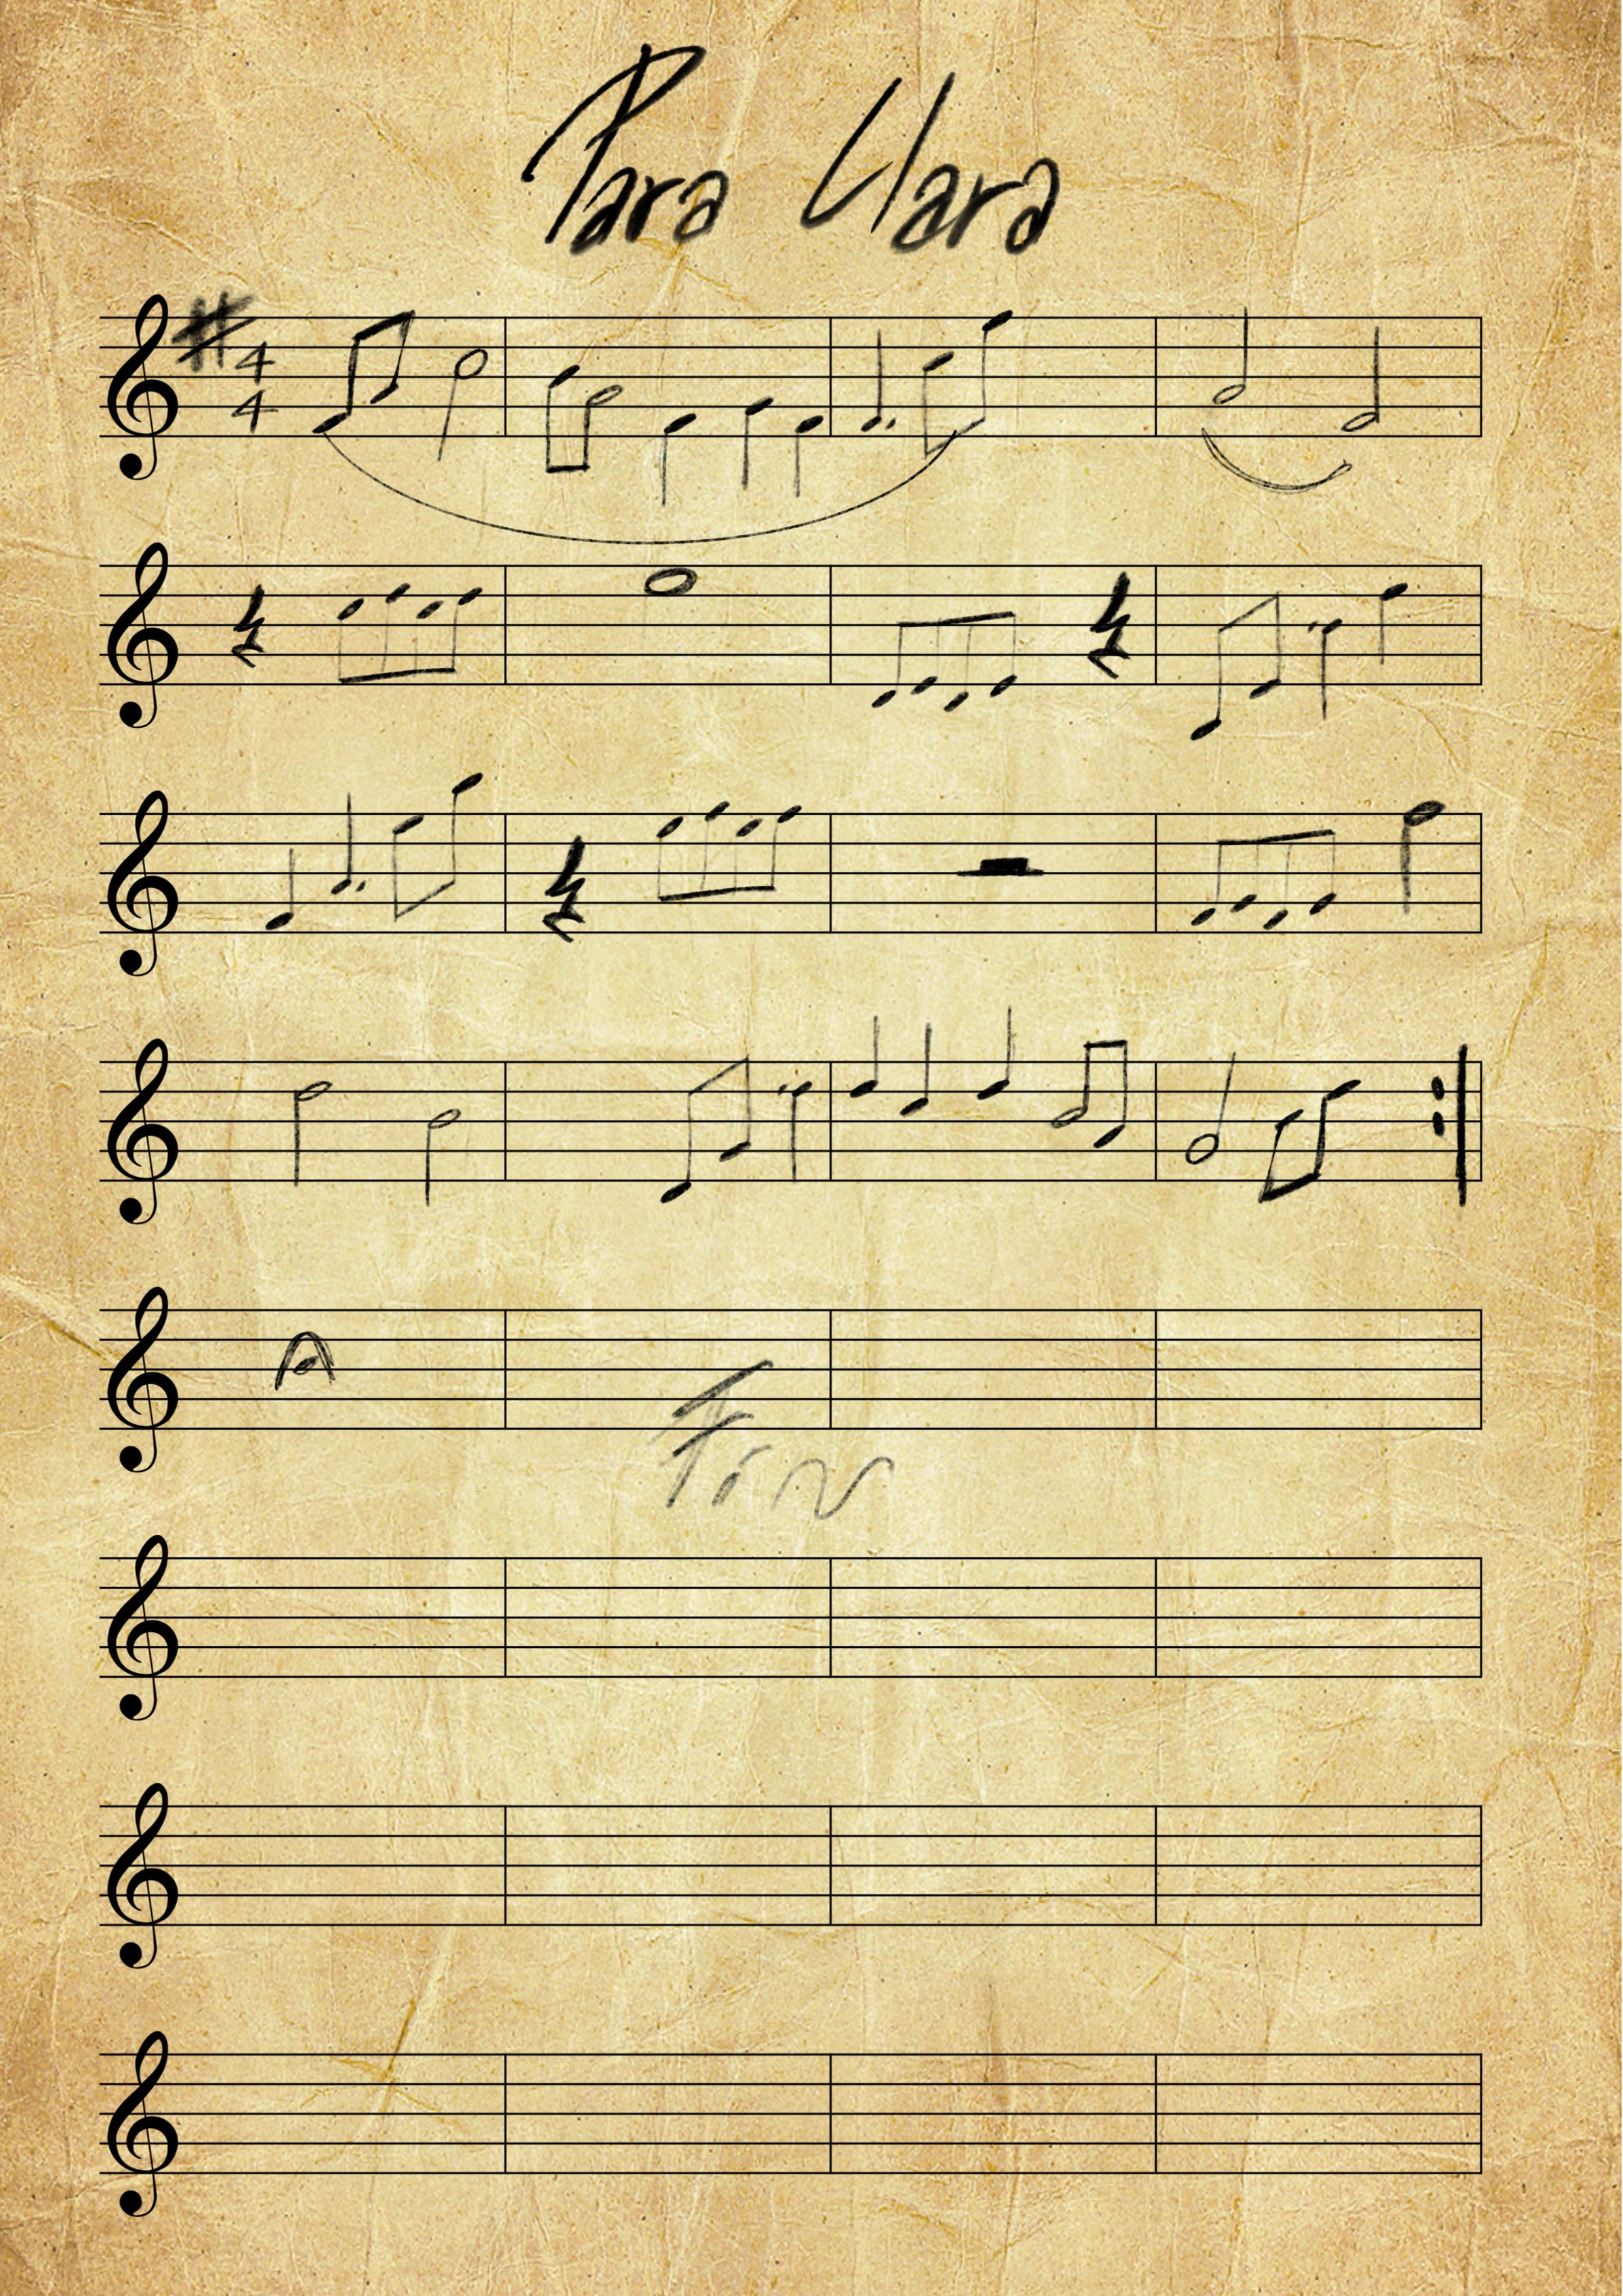 Para Clara
4
4
Fin